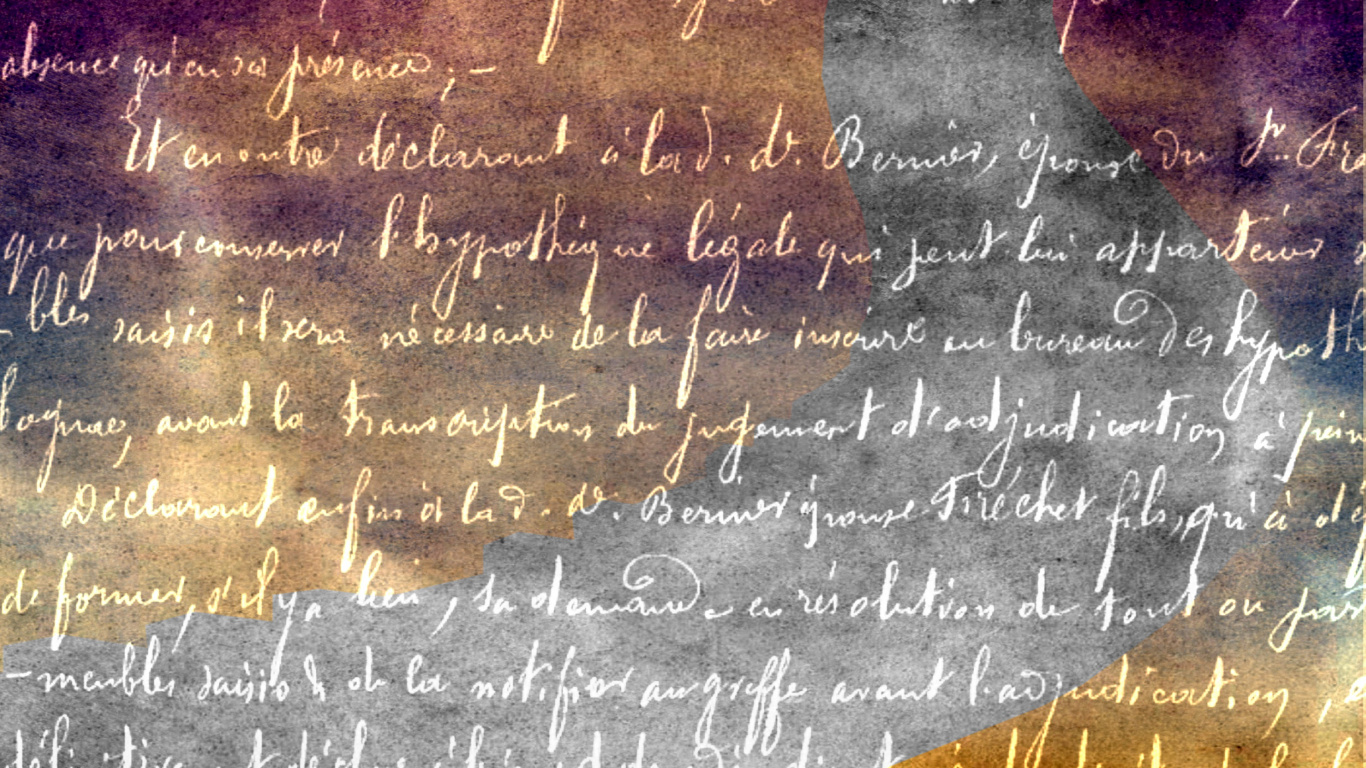 absence qu'en sa présence ; -
Et en outre déclarant à la d. de. Bernier, épouse du Sr. Fré
que pour conserver l'hypothèque légale qui peut lui appartenir s
- bles saisis il sera nécessaire de la faire inscrire au bureau des hypoth
logne, avant la transcription du jugement d'adjudication à pein
Déclarant enfin à la d. de. Bernier épouse Fréchet fils, qu'à dé
de former, s'il y a lieu, sa demande en résolution de tout ou par
- meubles saisis & de la notifier au greffe avant l'adjudication,